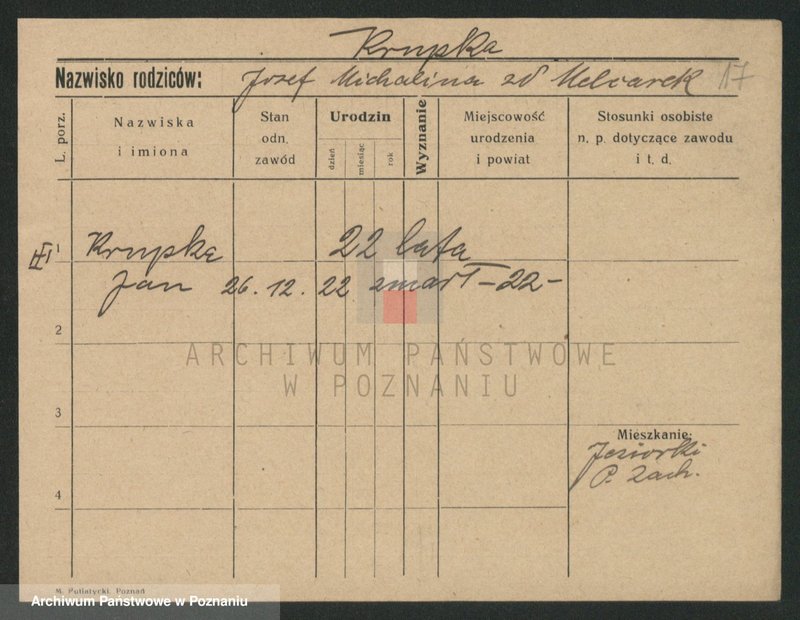 Krupka
Nazwisko rodziców: Jozef Michalina zd Melcarek 17
L. porz.
Nazwiska i imiona
Stan odn. zawód
Urodzin
dzień
miesiąc
rok
Wyznanie
Miejscowość urodzenia i powiat
Stosunki osobiste n. p. dotyczące zawodu i t. d.
1 Krupka 22 lata
Jan 26. 12. 22 zmarł -22-
2
ARCHIWUM PAŃSTWOWE
W POZNANIU
3
Mieszkanie:
Jeziorki
P. Zach.
4
M. Putiatycki, Poznań
Archiwum Państwowe w Poznaniu